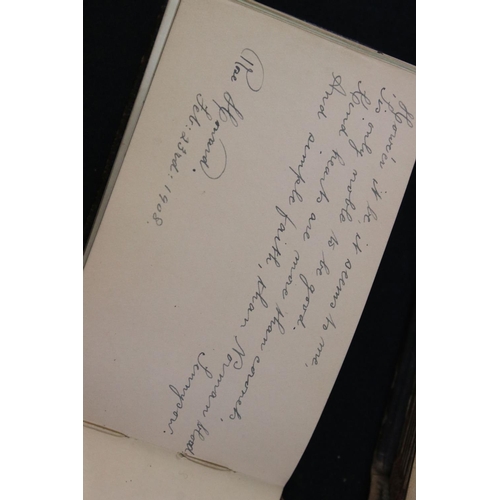 Howe'er it be, it seems to me,
'Tis only noble to be good.
Kind hearts are more than coronets,
And simple faith, than Norman blood,
Tennyson.
Rae Howard.
Feb: 23rd: 1908.